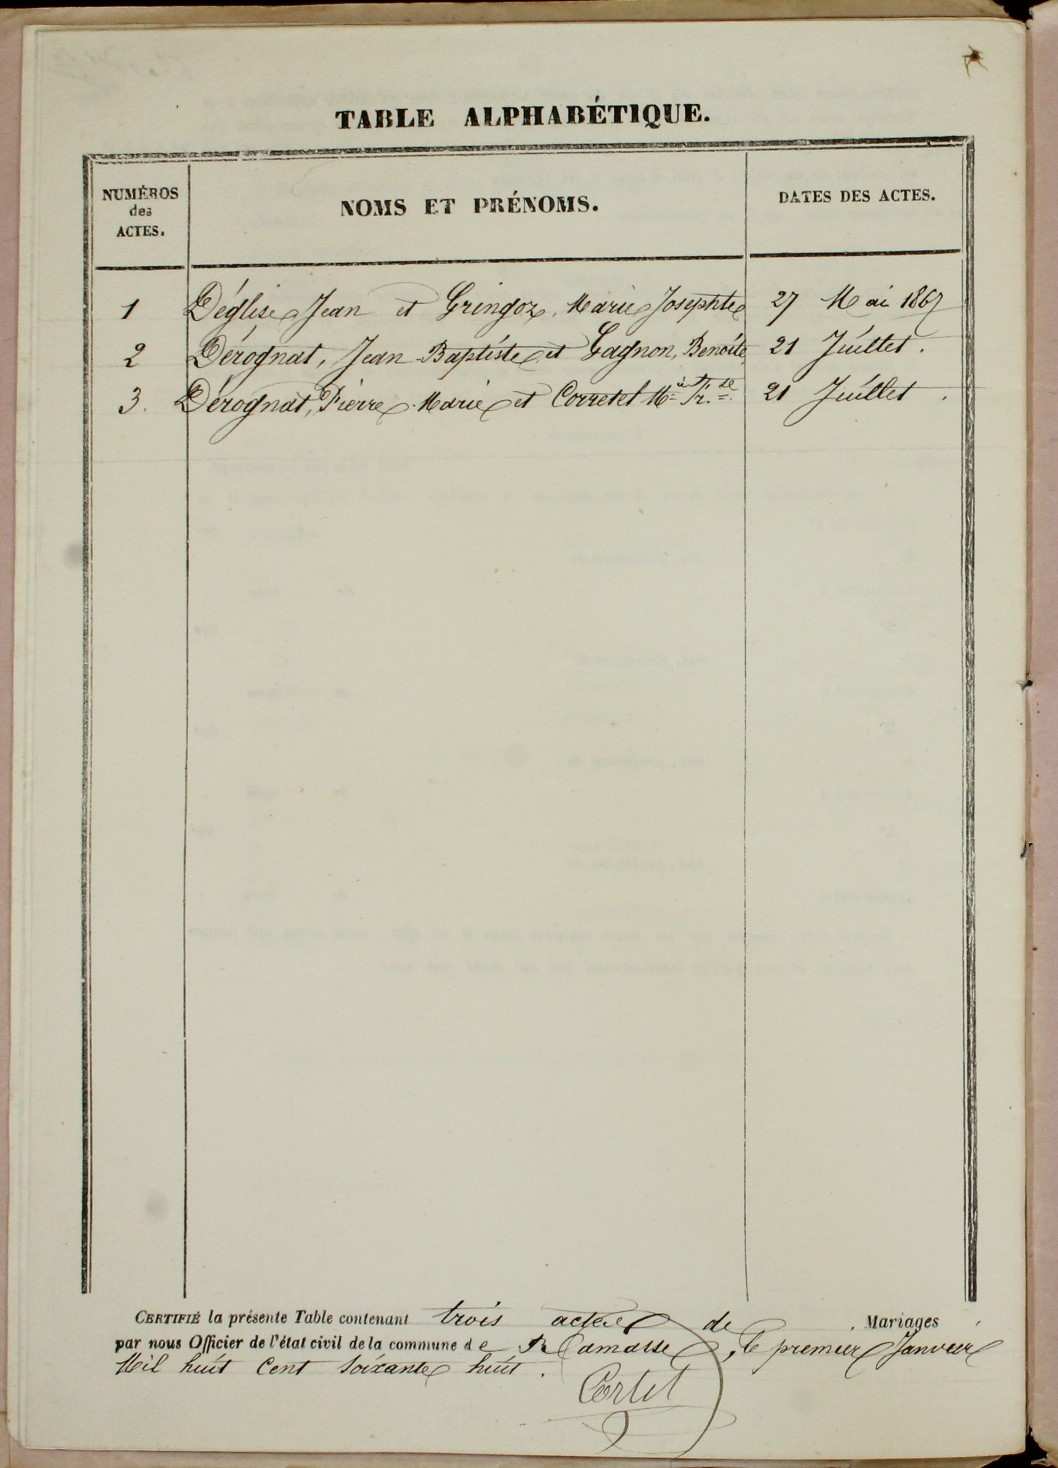 TABLE ALPHABÉTIQUE.
NUMÉROS
des
ACTES.
NOMS ET PRÉNOMS.
DATES DES ACTES.
1 Déglise Jean et Gringoz, Marie Josephte 27 Mai 1867
2 Dérognat, Jean-Baptiste et Gagnon, Benoite 21 Juillet.
3. Dérognat, Pierre Marie et Corretet Mie Fr.se 21 Juillet.
CERTIFIÉ la présente Table contenant trois actes de Mariages
par nous Officier de l'état civil de la commune de Ramasse, le premier Janvier
Mil huit cent soixante huit.
Cortet